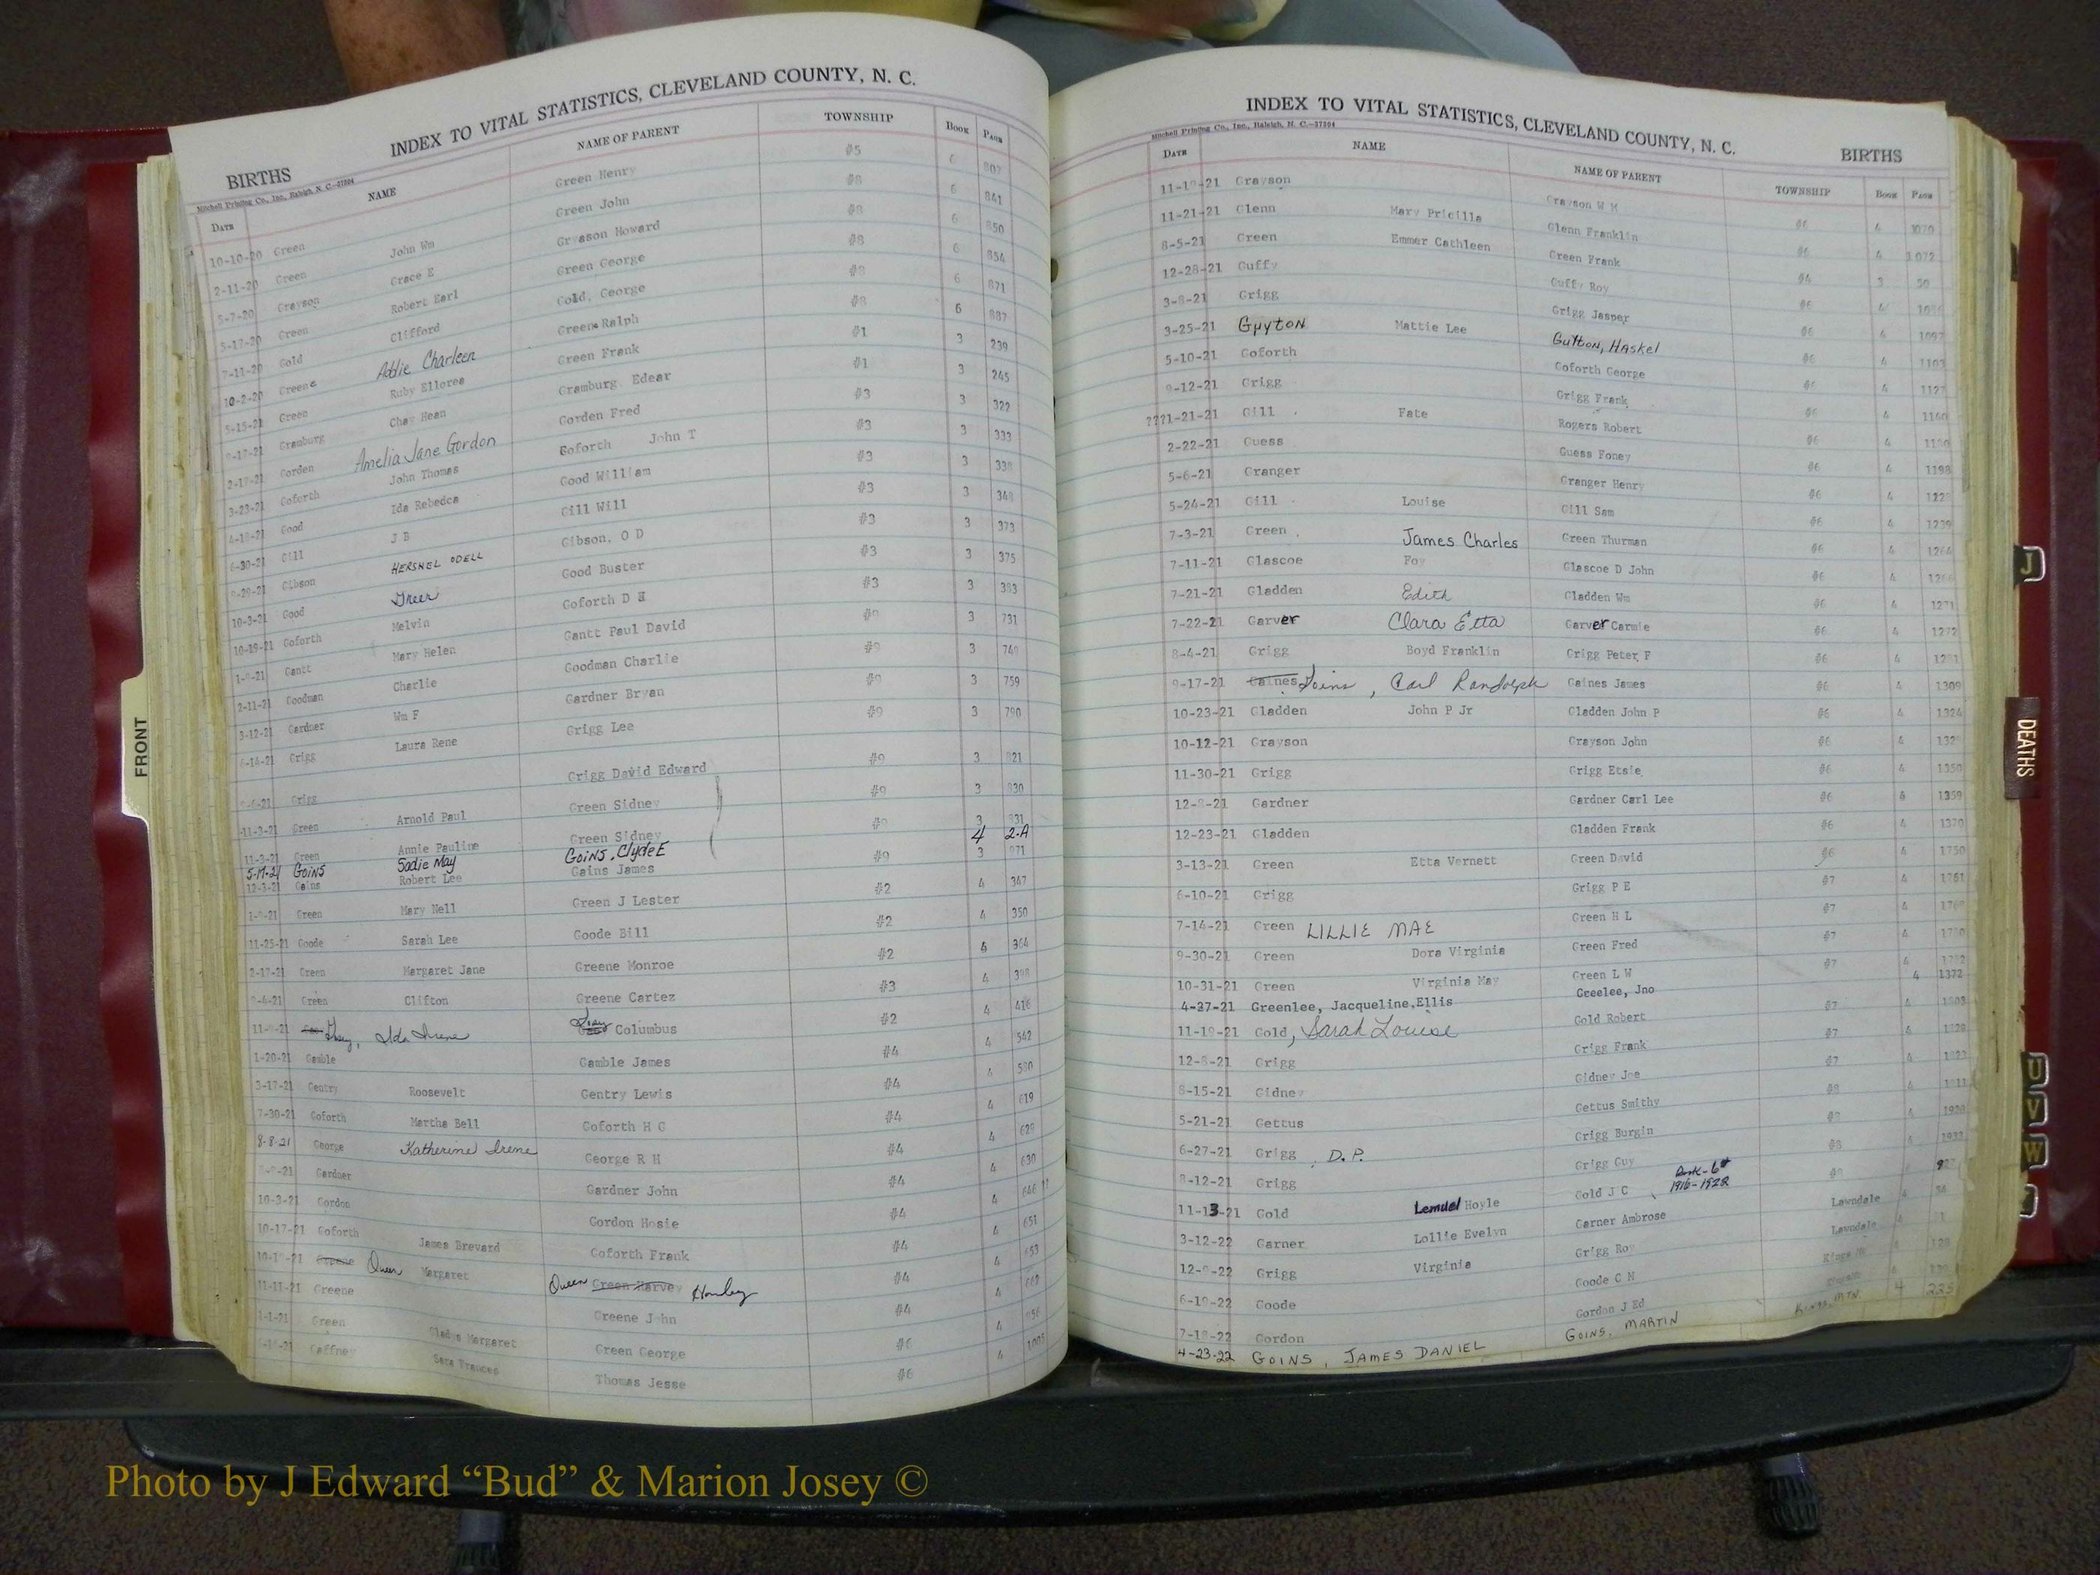 INDEX TO VITAL STATISTICS, CLEVELAND COUNTY, N. C.
BIRTHS
Mitchell Printing Co., Inc., Raleigh, N. C.
DATE NAME NAME OF PARENT TOWNSHIP BOOK PAGE
10-10-20 Green John Wm Green Henry #5 6 802
2-11-20 Green Grace E Green John #8 6 841
5-7-20 Grayson Robert Earl Gryason Howard #8 6 850
5-17-20 Green Clifford Green George #8 6 854
7-11-20 Gold Addie Charleen Gold, George #8 6 871
10-2-20 Greene Ruby Ellores Greene Ralph #8 6 887
5-15-21 Green Chas Hean Green Frank #1 3 239
Gramburg Gramburg Edear #1 3 245
2-17-21 Gorden Amelia Jane Gordon Gorden Fred #3 3 322
3-23-21 Goforth John Thomas Goforth John T #3 3 333
4-18-21 Good Ida Rebedca Good William #3 3
6-30-21 Gill J B Gill Will #3 3 348
Gibson HERSHEL ODELL Gibson, O D #3 3 373
10-3-21 Good Greer Good Buster #3 3 375
10-19-21 Goforth Melvin Goforth D H #3 3 383
Gantt Mary Helen Gantt Paul David #9 3 731
2-11-21 Goodman Charlie Goodman Charlie #9 3 749
3-12-21 Gardner Wm F Gardner Bryan #9 3 759
6-14-21 Grigg Laura Rene Grigg Lee #9 3 790
Grigg Grigg David Edward #9 3 821
11-3-21 Green Arnold Paul Green Sidney #9 3 830
11-3-21 Green Annie Pauline Green Sidney #9 3 831
5-17-21 GOINS Sadie May GOINS, Clyde E 4 2-A
12-3-21 Gains Robert Lee Gains James #9 3 971
Green Mary Nell Green J Lester #2 4 347
11-25-21 Goode Sarah Lee Goode Bill #2 4 350
2-17-21 Green Margaret Jane Greene Monroe #2 4 364
Green Clifton Greene Cartez #3 4 398
Ida Irene Columbus #2 4 416
1-20-21 Gamble Gamble James #4 4 542
3-17-21 Gentry Roosevelt Gentry Lewis #4 4 580
7-30-21 Goforth Martha Bell Goforth H G #4 4 619
8-8-21 George Katherine Irene George R H #4 4 629
Gardner Gardner John #4 4 630
10-3-21 Gordon Gordon Hosie #4 4 646
10-17-21 Goforth James Brevard Goforth Frank #4 4 651
Queen Margaret Queen Green Harvey #4 4 653
11-11-21 Greene Greene John #4 4
Green Gladys Margaret Green George #6 4
Gaffney Sara Frances Thomas Jesse #6 4 1005
FRONT
INDEX TO VITAL STATISTICS, CLEVELAND COUNTY, N. C.
BIRTHS
Mitchell Printing Co., Inc., Raleigh, N. C.—37504
DATE NAME NAME OF PARENT TOWNSHIP BOOK PAGE
Grayson Grayson W M #6 4 1070
11-21-21 Glenn Mary Pricilla Glenn Franklin #6 4 1072
8-5-21 Green Emmer Cathleen Green Frank #4 3 50
12-28-21 Guffy Guffy Roy #6 4
3-8-21 Grigg Grigg Jasper #6 4 1097
3-25-21 Guyton Mattie Lee Gutton, Haskel #6 4 1103
5-10-21 Goforth Goforth George #6 4 1127
9-12-21 Grigg Grigg Frank #6 4 1160
???1-21-21 Gill Fate Rogers Robert #6 4
2-22-21 Guess Guess Foney #6 4 1198
5-6-21 Granger Granger Henry #6 4
5-24-21 Gill Louise Gill Sam #6 4 1239
7-3-21 Green James Charles Green Thurman #6 4 1264
7-11-21 Glascoe Foy Glascoe D John #6 4 1266
7-21-21 Gladden Edith Gladden Wm #6 4 1271
7-22-21 Garver Clara Etta Garver Carmie #6 4 1272
8-4-21 Grigg Boyd Franklin Grigg Peter F #6 4 1281
9-17-21 Gaines Goins, Carl Randolph Gaines James #6 4 1309
10-23-21 Gladden John P Jr Gladden John P #6 4 1324
10-12-21 Grayson Grayson John #6 4
11-30-21 Grigg Grigg Etsie #6 4 1350
12-8-21 Gardner Gardner Carl Lee #6 4 1359
12-23-21 Gladden Gladden Frank #6 4 1370
3-13-21 Green Etta Vernett Green David #6 4 1750
6-10-21 Grigg Grigg P E #7 4 1761
7-14-21 Green LILLIE MAE Green H L #7 4
9-30-21 Green Dora Virginia Green Fred #7 4 1780
10-31-21 Green Virginia May Green L W #7 4 1782
4-27-21 Greenlee, Jacqueline.Ellis Greelee, Jno 4 1372
11-19-21 Gold, Sarah Louise Gold Robert #7 4
12-8-21 Grigg Grigg Frank #7 4
8-15-21 Gidney Gidney Joe #7 4
5-21-21 Gettus Gettus Smithy #8 4
6-27-21 Grigg D.P. Grigg Burgin #8 4
8-12-21 Grigg Grigg Guy #8
11-13-21 Gold Lemuel Hoyle Gold J C Book-6# 1916-1922
3-12-22 Garner Lollie Evelyn Garner Ambrose Lawndale
12-9-22 Grigg Virginia Grigg Roy Lawndale
6-19-22 Goode Goode C N Kings Mt
7-18-22 Gordon Gordon J Ed
4-23-22 GOINS, JAMES DANIEL GOINS, MARTIN KINGS MTN. 4 235
J
DEATHS
U
V
W
Photo by J Edward “Bud” & Marion Josey ©